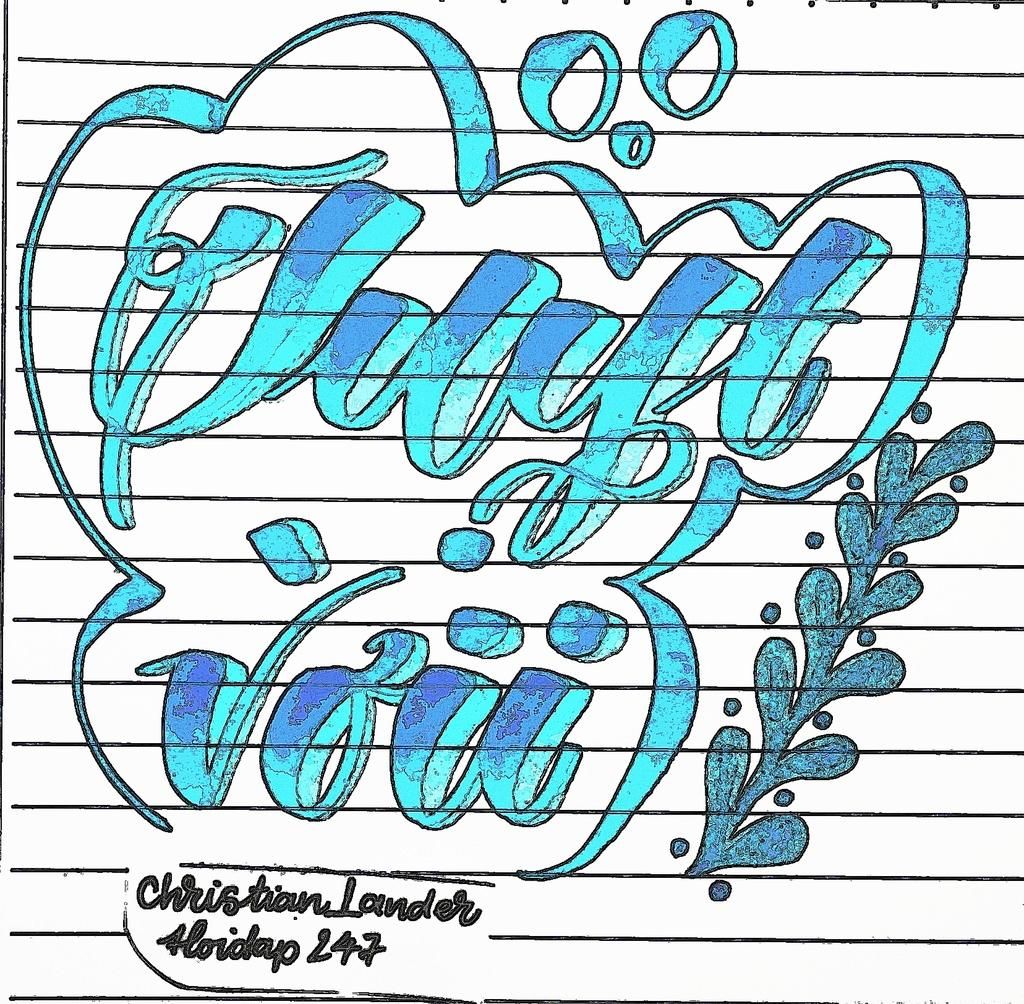 Tuỵt
Vờii
Christian_Lander
Hoidap 247